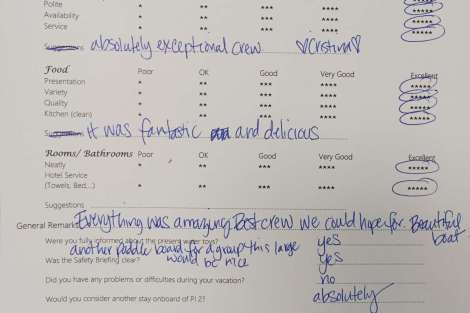 Polite * ** *** **** *****
Availability * ** *** **** *****
Service * ** *** **** *****
Suggestions absolutely exceptional crew ♡Cristina♡
Food Poor OK Good Very Good Excellent
Presentation * ** *** **** *****
Variety * ** *** **** *****
Quality * ** *** **** *****
Kitchen (clean) * ** *** **** *****
Suggestions it was fantastic and delicious
Rooms/ Bathrooms Poor OK Good Very Good Excellent
Neatly * ** *** **** *****
Hotel Service
(Towels, Bed...) * ** *** **** *****
Suggestions
General Remarks Everything was amazing. Best crew we could hope for. Beautiful boat
Were you fully informed about the present water toys? yes
another paddle board for a group this large would be nice
Was the Safety Briefing clear? yes
Did you have any problems or difficulties during your vacation? no
Would you consider another stay onboard of P.I.2? absolutely